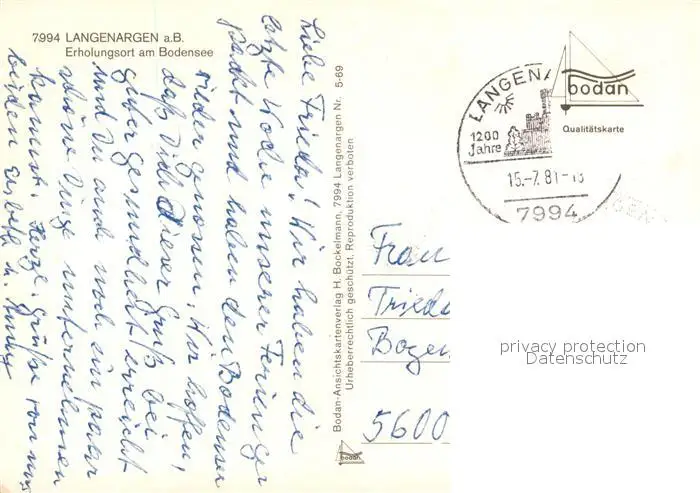 7994 LANGENARGEN a.B.
Erholungsort am Bodensee
Liebe Frieda! Wir haben die
letzte Woche unserer Ferien ge
packt und haben den Bodensee
wieder genossen. Wir hoffen,
daß Dich dieser Gruß bei
guter Gesundheit erreicht
und Du auch noch ein paar
schöne Dinge unternehmen
kannst. Herzl. Grüße von uns
beiden
Bodan-Ansichtskartenverlag H. Bockelmann, 7994 Langenargen Nr. 5-69
Urheberrechtlich geschützt. Reproduktion verboten
bodan
LANGENA
1200
Jahre
15.-7.81-
7994
bodan
Qualitätskarte
Frau
Frieda
5600
privacy protection
Datenschutz